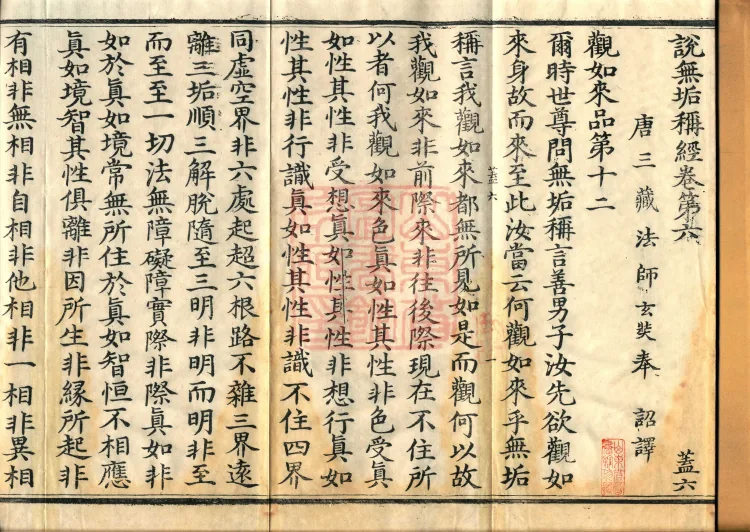 說無垢稱經卷第六 蓋六
唐三藏法師玄奘奉 詔譯
觀如來品第十二
爾時世尊問無垢稱言善男子汝先欲觀如
來身故而來至此汝當云何觀如來乎無垢
蓋六 一
稱言我觀如來都無所見如是而觀何以故
我觀如來非前際來非往後際現在不住所
以者何我觀如來色真如性其性非色受真
如性其性非受想真如性其性非想行真如
性其性非行識真如性其性非識不住四界
同虛空界非六處起超六根路不雜三界遠
離三垢順三解脫隨至三明非明而明非至
而至至一切法無障礙障實際非際真如非
如於真如境常無所住於真如智恒不相應
真如境智其性俱離非因所生非緣所起非
有相非無相非自相非他相非一相非異相